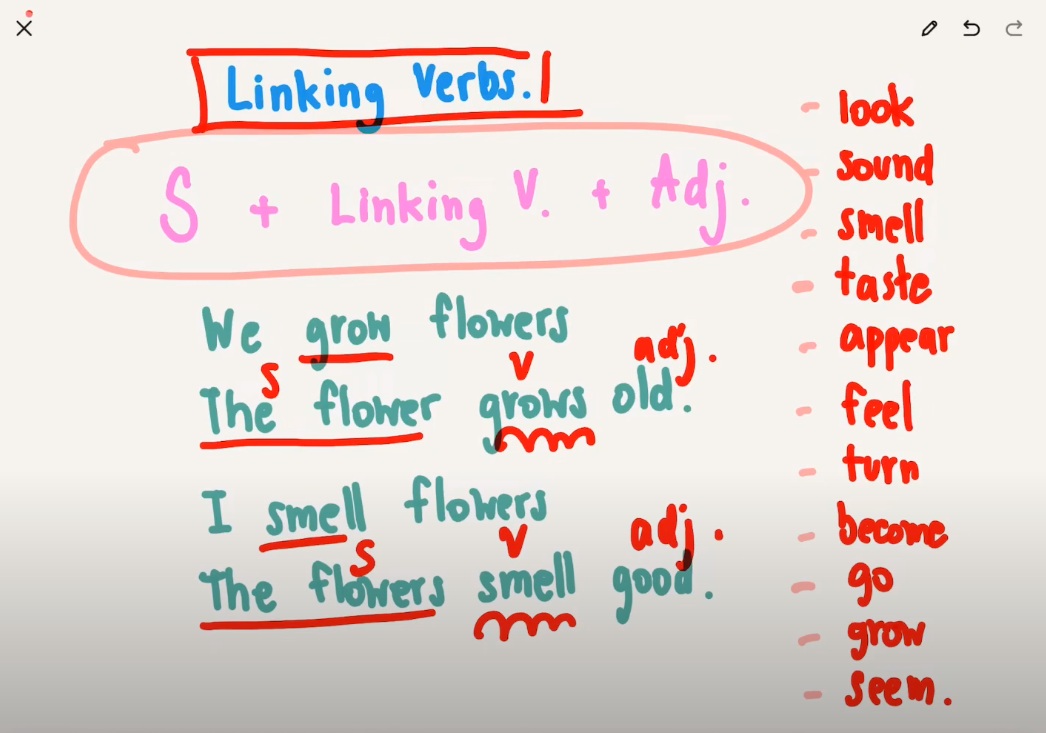 Linking Verbs.
S + Linking V. + Adj.
We grow flowers
s v adj.
The flower grows old.
I smell flowers
s v adj.
The flowers smell good.
- look
- sound
- smell
- taste
- appear
- feel
- turn
- become
- go
- grow
- seem.